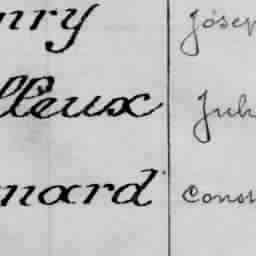 nry Josep
lleux Juli
nard Const